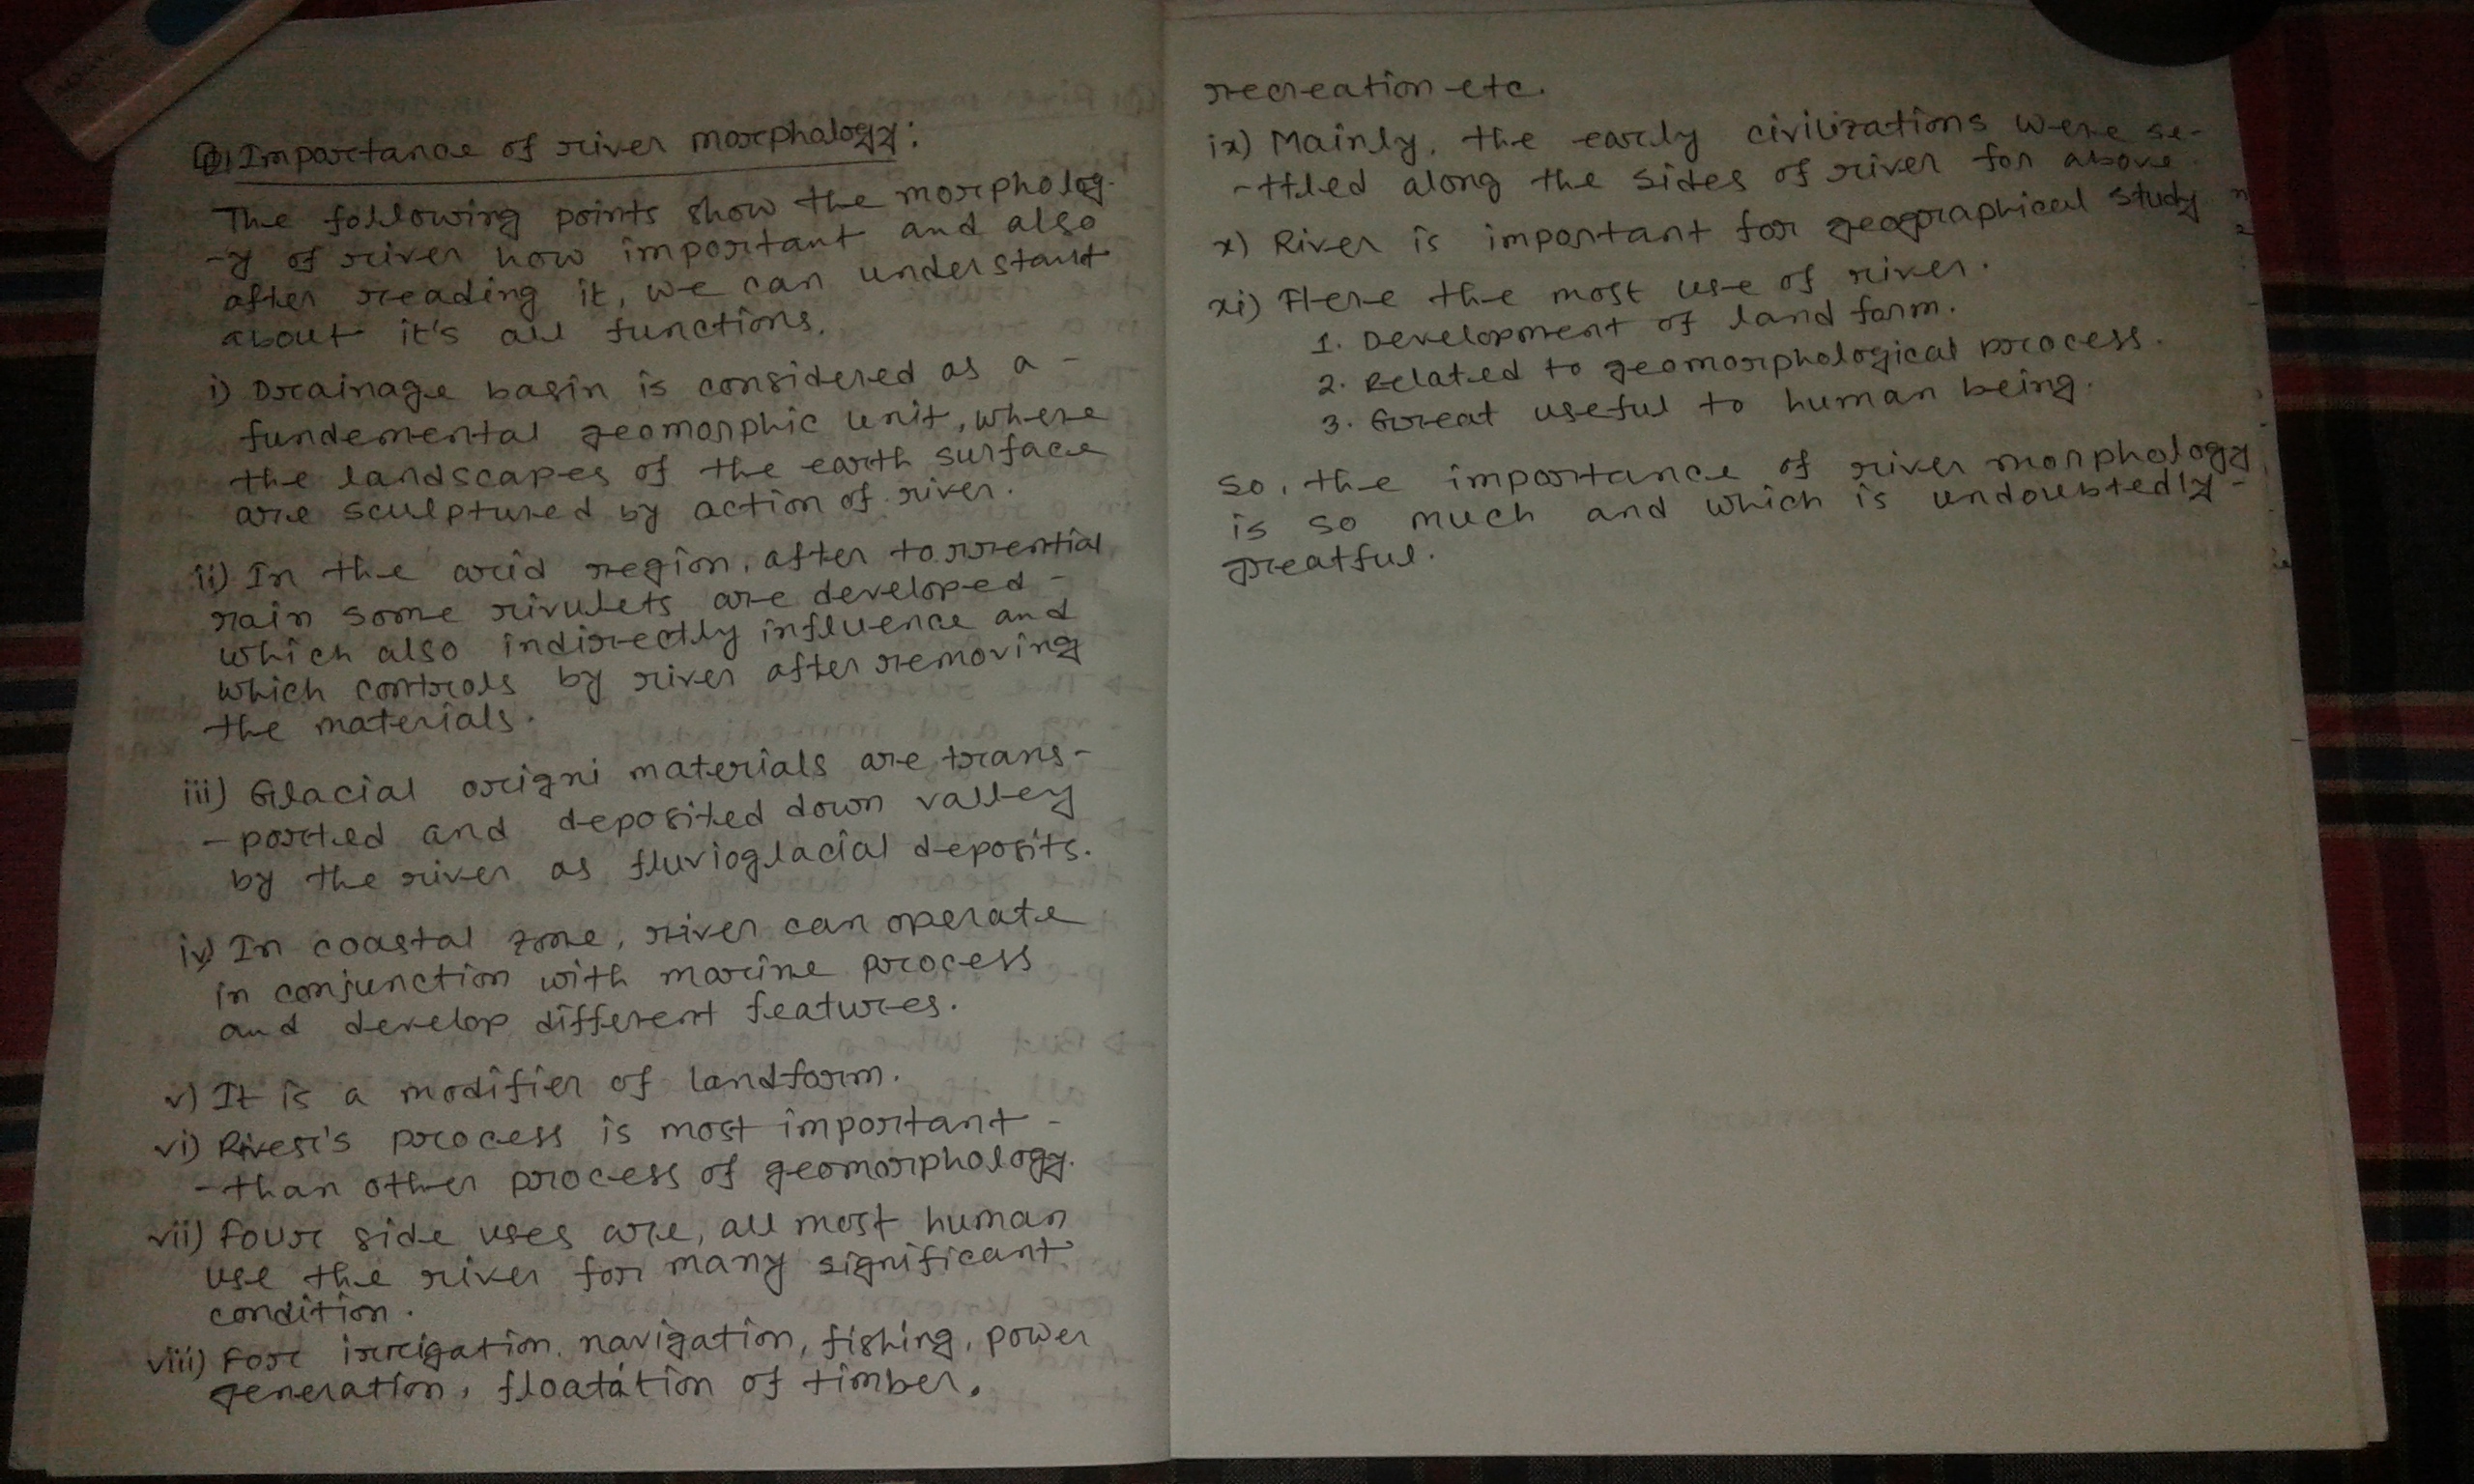 Importance of river morphology:
The following points show the morpholog-
-y of river how important and also
after reading it, we can understant
about it's all functions.
i) Drainage basin is considered as a -
fundemental geomorphic unit, where
the landscapes of the earth surface
are sculptured by action of river.
ii) In the arid region, after torrential
rain some rivulets are developed -
which also indirectly influence and
which controls by river after removing
the materials.
iii) Glacial origni materials are trans-
-ported and deposited down valley
by the river as fluvioglacial deposits.
iv) In coastal zone, river can operate
in conjunction with marine process
and develop different features.
v) It is a modifier of landform.
vi) River's process is most important -
-than other process of geomorphology.
vii) Four side uses are, all most human
use the river for many significant
condition.
viii) For irrigation, navigation, fishing, power
generation, floatation of timber.
recreation etc.
ix) Mainly, the early civilizations were se-
-ttled along the sides of river for above.
x) River is important for geographical study
xi) Here the most use of river.
1. Development of land form.
2. Related to geomorphological process.
3. Great useful to human being.
so, the importance of river morphology,
is so much and which is undoubtedly -
greatful.